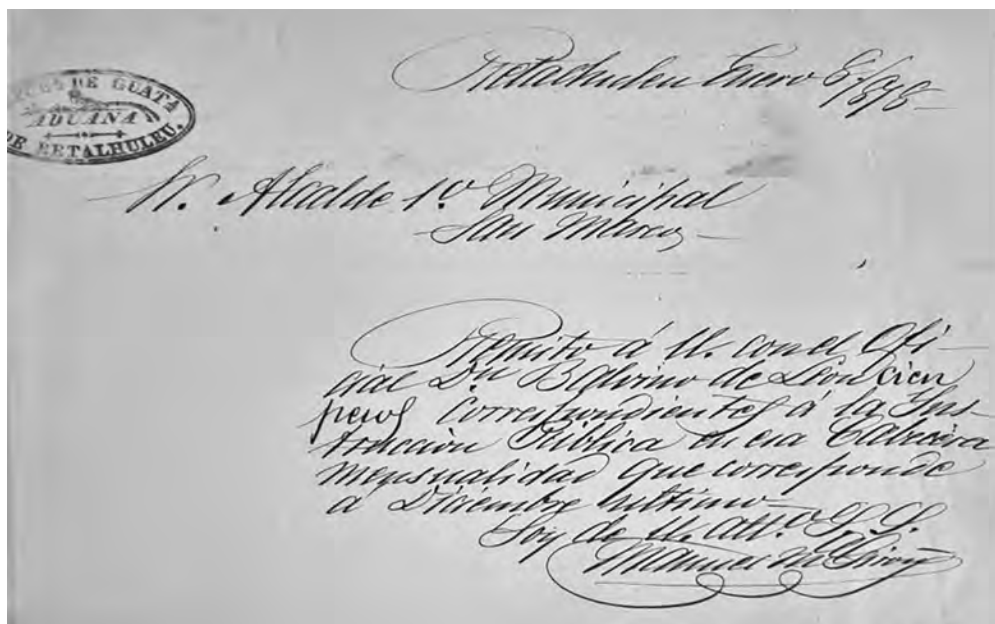 Retalhuleu Enero 8/878
DE GUATA
ADUANA
DE RETALHULEU.
Sr. Alcalde 1º Municipal
San Marcos
Remito á U. con el Ofi-
cial Dn Balvino de Leon cien
pesos correspondientes á la Ins-
truccion Pública en esa Cabecera
mensualidad que corresponde
a Diciembre ultimo
Soy de U. att.º S. S.
Manuel M. Giron